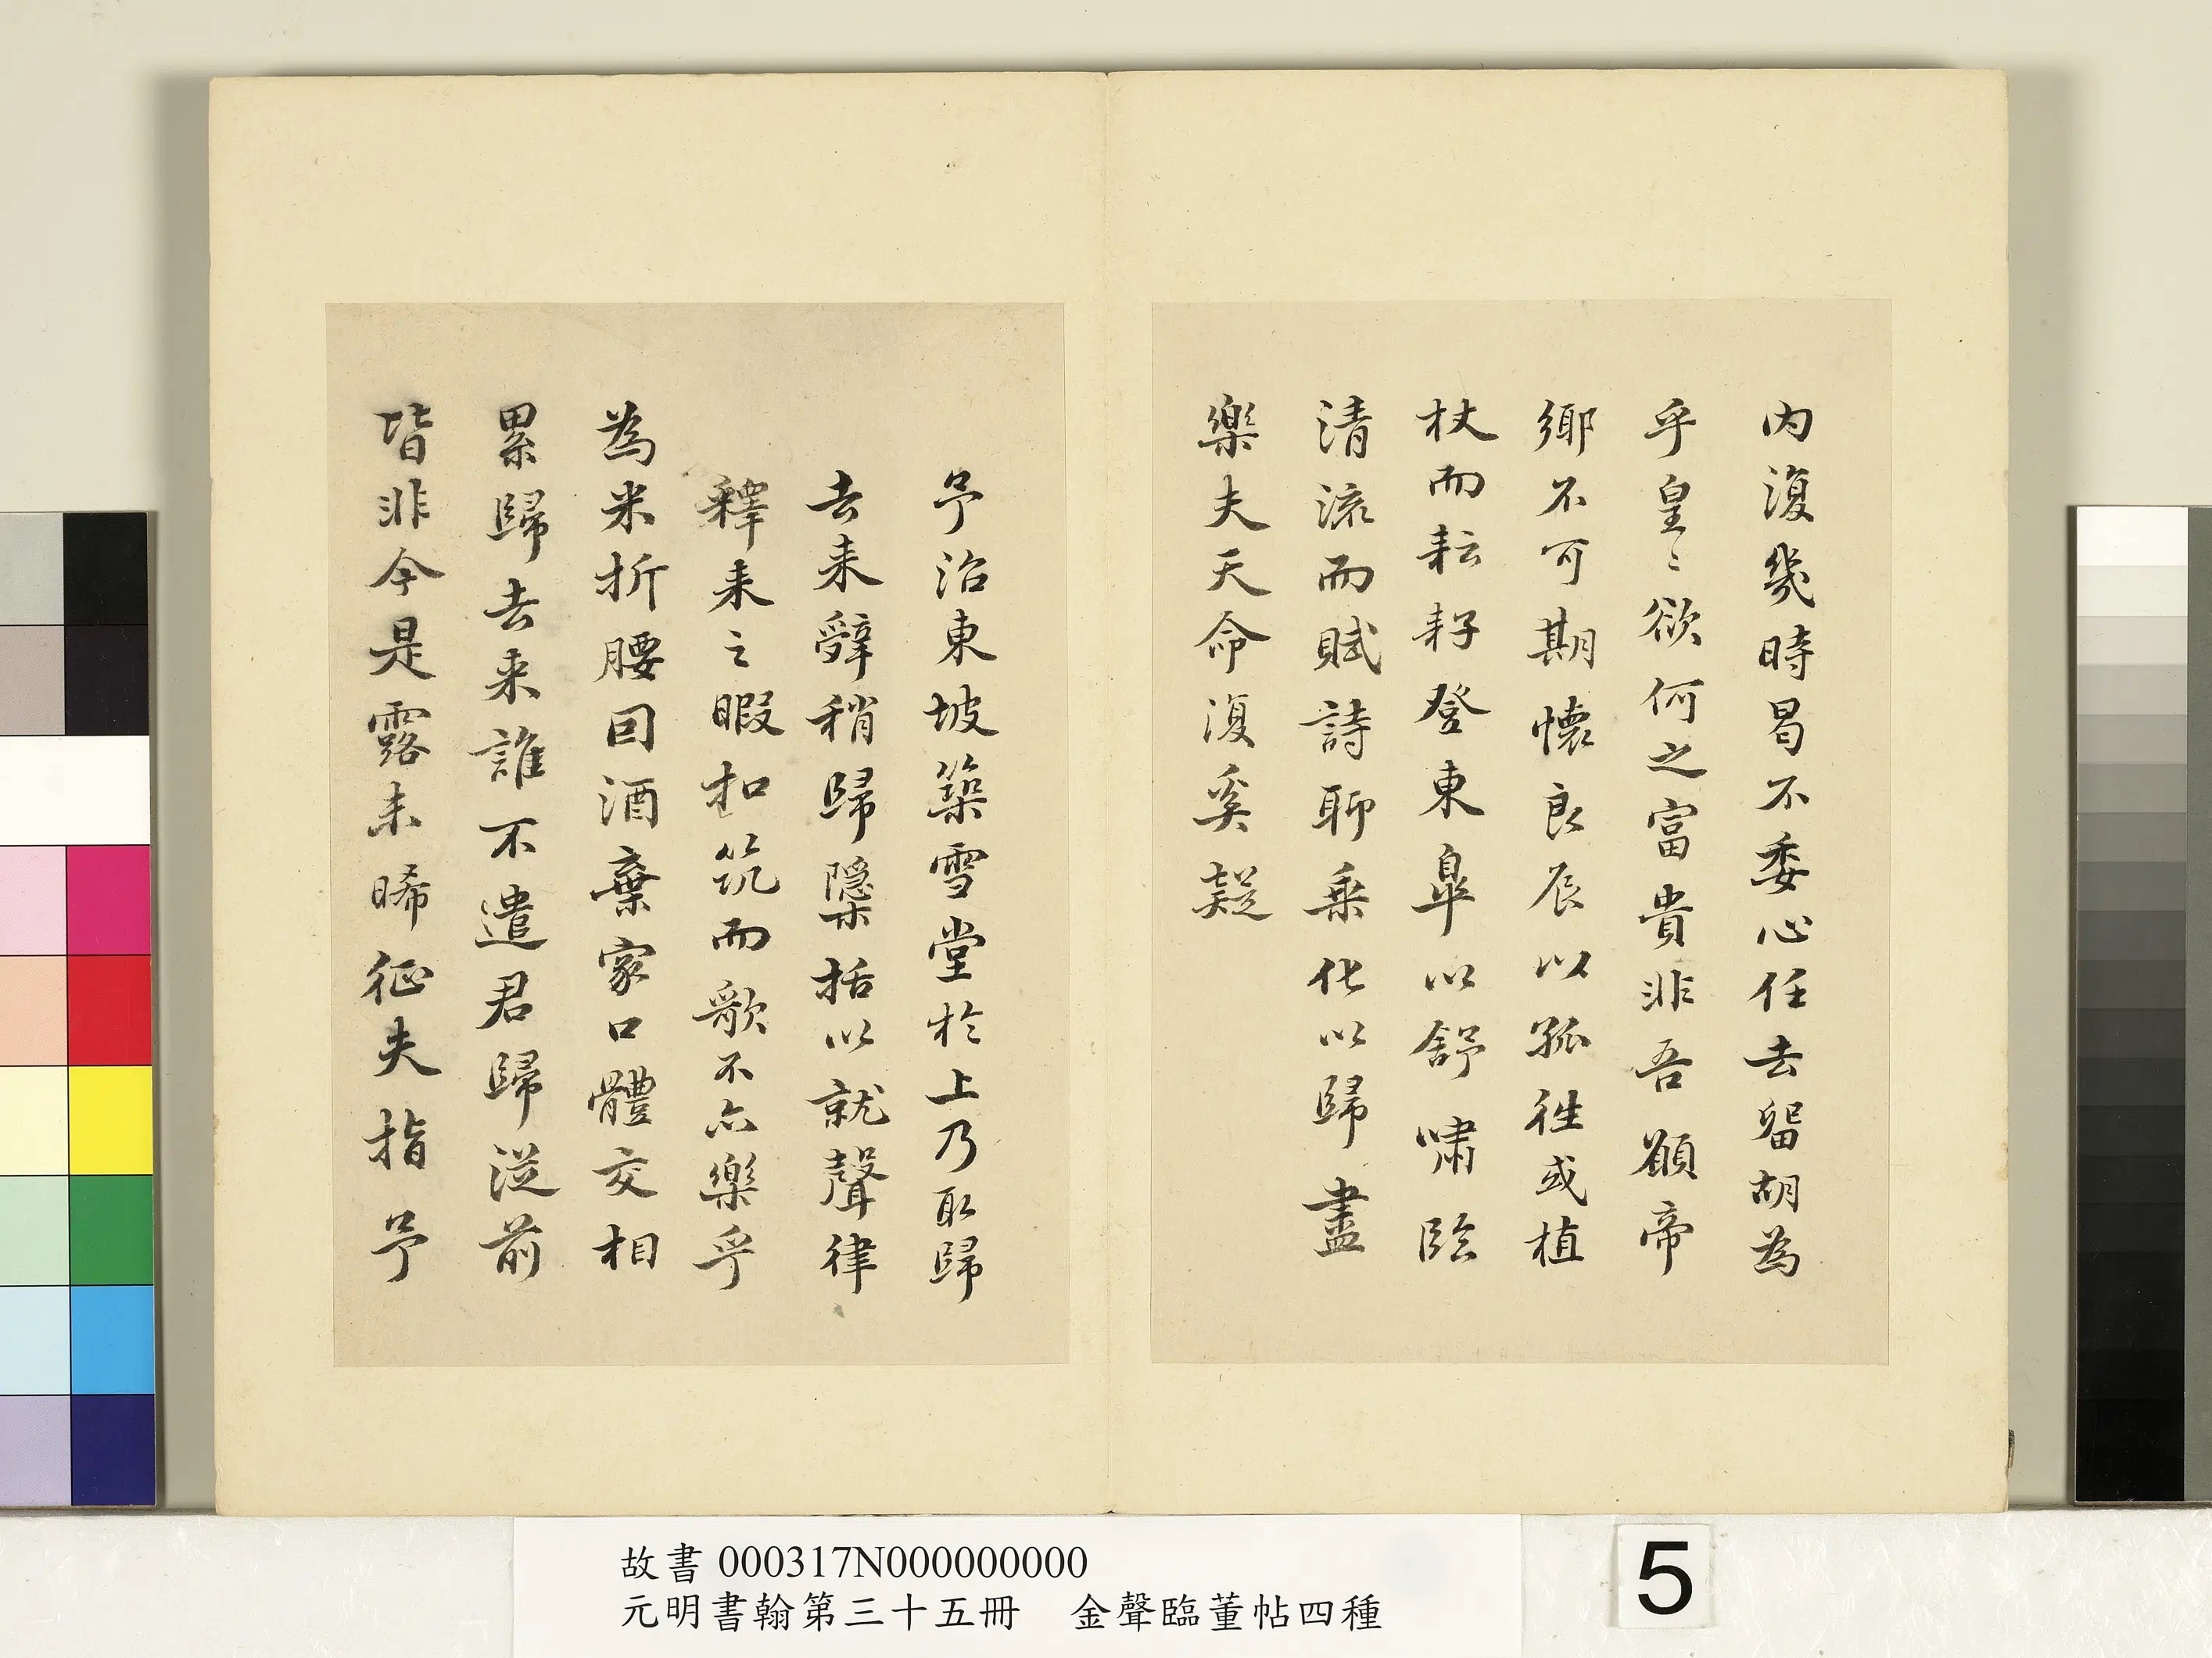 內復幾時曷不委心任去留胡為
乎皇〻欲何之富貴非吾願帝
鄉不可期懷良辰以孤往或植
杖而耘耔登東皋以舒嘯臨
清流而賦詩聊乘化以歸盡
樂夫天命復奚疑
予治東坡築雪堂於上乃取歸
去来辭稍歸隱括以就聲律
釋耒之暇扣筑而歌不亦樂乎
為米折腰因酒棄家口體交相
累歸去来誰不遣君歸從前
皆非今是露未晞征夫指予
故書 000317N000000000
元明書翰第三十五冊 金聲臨董帖四種
5